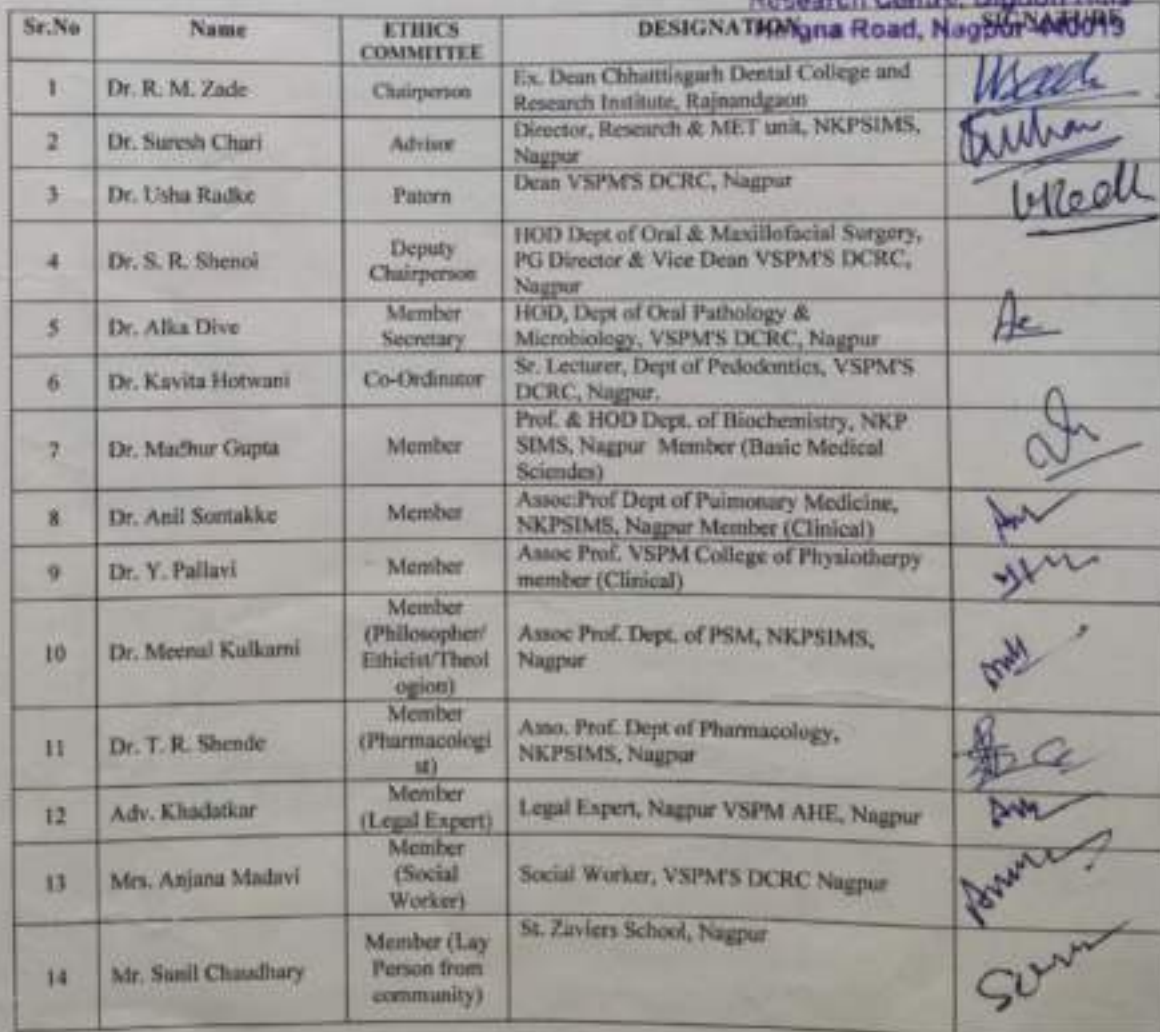 Research Centre, Digdoh Hills
Hingna Road, Nagpur-440019
Sr.No Name ETHICS COMMITTEE DESIGNATION SIGNATURE
1 Dr. R. M. Zade Chairperson Ex. Dean Chhatttisgarh Dental College and
Research Institute, Rajnandgaon
2 Dr. Suresh Chari Advisor Director, Research & MET unit, NKPSIMS,
Nagpur
3 Dr. Usha Radke Patorn Dean VSPM'S DCRC, Nagpur
4 Dr. S. R. Shenoi Deputy Chairperson HOD Dept of Oral & Maxillofacial Surgery,
PG Director & Vice Dean VSPM'S DCRC,
Nagpur
5 Dr. Alka Dive Member Secretary HOD, Dept of Oral Pathology &
Microbiology, VSPM'S DCRC, Nagpur
6 Dr. Kavita Hotwani Co-Ordinator Sr. Lecturer, Dept of Pedodontics, VSPM'S
DCRC, Nagpur.
7 Dr. Madhur Gupta Member Prof. & HOD Dept. of Biochemistry, NKP
SIMS, Nagpur Member (Basic Medical
Sciendes)
8 Dr. Anil Sontakke Member Assoc:Prof Dept of Pulmonary Medicine,
NKPSIMS, Nagpur Member (Clinical)
9 Dr. Y. Pallavi Member Assoc Prof. VSPM College of Physiotherpy
member (Clinical)
10 Dr. Meenal Kulkarni Member
(Philosopher/
Ethicist/Theol
ogion) Assoc Prof. Dept. of PSM, NKPSIMS,
Nagpur
11 Dr. T. R. Shende Member
(Pharmacologi
st) Asso. Prof. Dept of Pharmacology,
NKPSIMS, Nagpur
12 Adv. Khadatkar Member
(Legal Expert) Legal Expert, Nagpur VSPM AHE, Nagpur
13 Mrs. Anjana Madavi Member
(Social
Worker) Social Worker, VSPM'S DCRC Nagpur
14 Mr. Sunil Chaudhary Member (Lay
Person from
community) St. Zaviers School, Nagpur